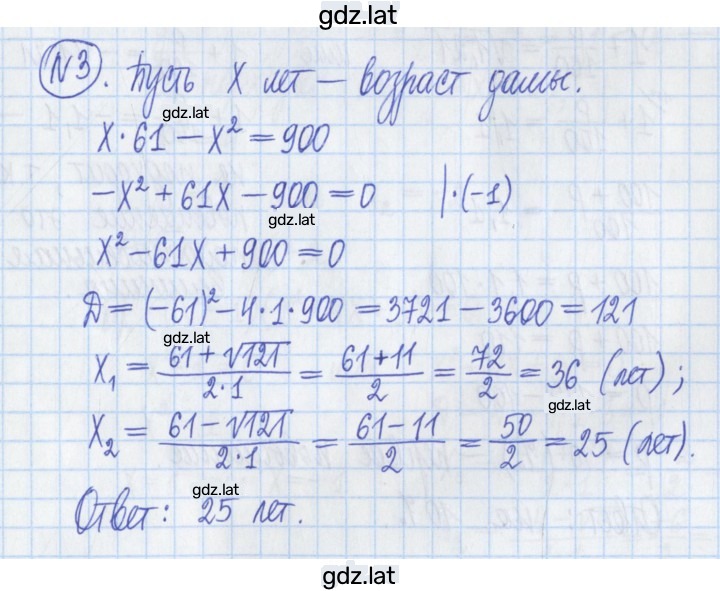 gdz.lat
№3. Пусть X лет – возраст дамы.
gdz.lat
X·61 – X² = 900
–X² + 61X – 900 = 0 |·(–1)
gdz.lat
X² – 61X + 900 = 0
Д = (–61)² – 4·1·900 = 3721 – 3600 = 121
gdz.lat
X₁ = (61 + √121)/(2·1) = (61 + 11)/2 = 72/2 = 36 (лет);
gdz.lat
X₂ = (61 – √121)/(2·1) = (61 – 11)/2 = 50/2 = 25 (лет).
gdz.lat
Ответ: 25 лет.
gdz.lat